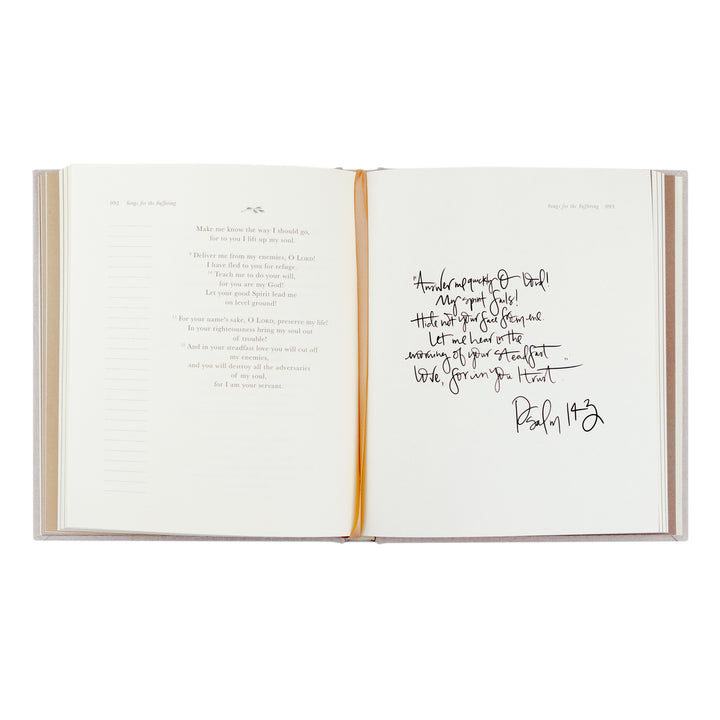 092 Songs for the Suffering
Make me know the way I should go,
for to you I lift up my soul.
9 Deliver me from my enemies, O LORD!
I have fled to you for refuge.
10 Teach me to do your will,
for you are my God!
Let your good Spirit lead me
on level ground!
11 For your name's sake, O LORD, preserve my life!
In your righteousness bring my soul out
of trouble!
12 And in your steadfast love you will cut off
my enemies,
and you will destroy all the adversaries
of my soul,
for I am your servant.
Songs for the Suffering 093
"Answer me quickly O Lord!
My spirit fails!
Hide not your face from me
Let me hear in the
morning of your steadfast
love, for in you I trust."
Psalm 143